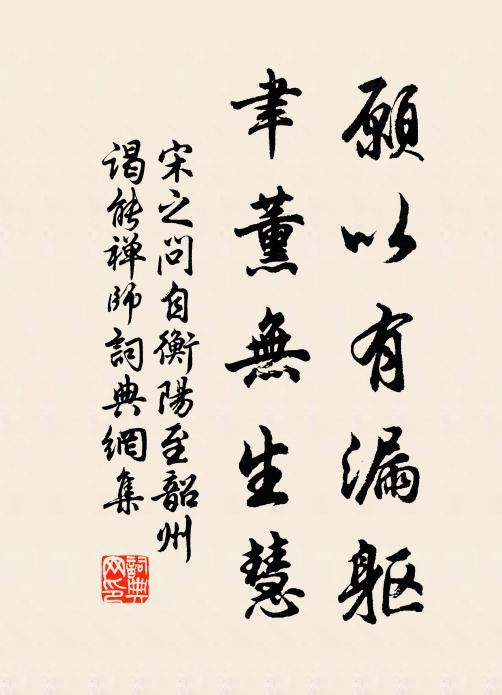 願以有漏軀
聿薰無生慧
宋之問自衡陽至韶州
謁能禅師詞典網集
詞典
网印